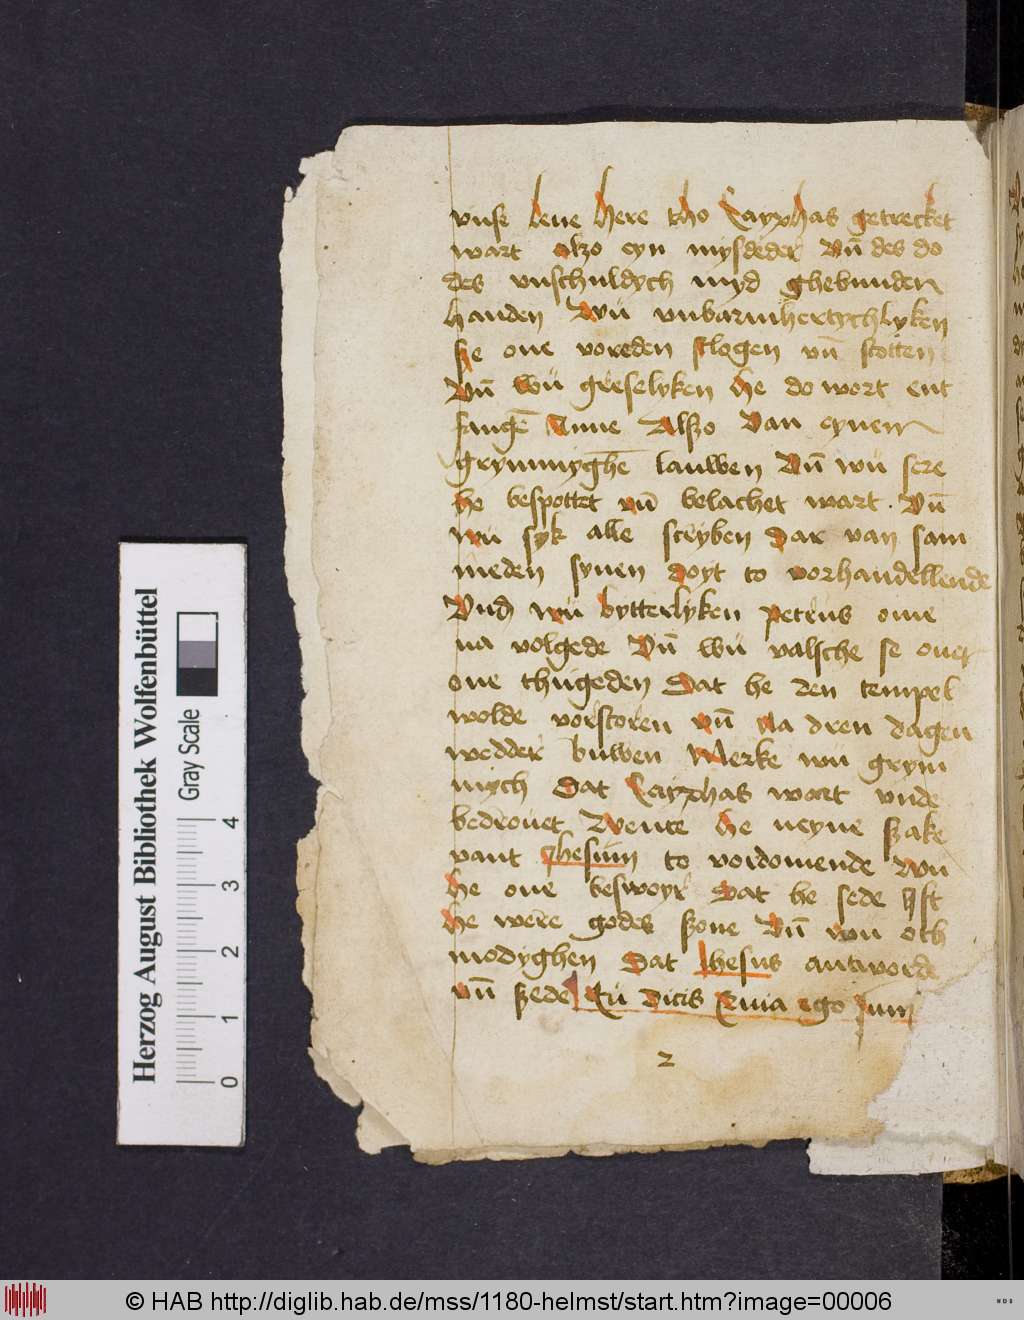 vnse leue here tho Cayphas getrecket
wart alzo eyn mysdeder vn̄ des do
des vnschuldych myd ghebunden
handen Wü vnbarmhertychlyken
sze one voreden slogen vn̄ stotten
Vn̄ wü greselyken he do wort ent
fangē Anne Alszo van eynen
grymmyghē lauwen Vn̄ wü sere
he bespottet vn̄ belachet wart. Vn̄
wü syk alle screyben dar van sam
meden synen doyt to vorhandellende
Vnd wü bytterlyken petrus ome
na volgede Vn̄ wü valsche se ouer
one thugeden Dat he den tempel
wolde vorstoren vn̄ na dren dagen
wedder buwen Merke wü grym
mych dat Cayphas wart vnde
bedrouet Wente he neyne szake
vant Jhesum to vordomende Wü
he one beswoyr Dat he sede Ift
he were godes szone Vn̄ wü oth
modyghen Dat Jhesus antworde
vn̄ szede Tü dicis Quia ego sum
2
Herzog August Bibliothek Wolfenbüttel
Gray Scale
0 1 2 3 4
© HAB http://diglib.hab.de/mss/1180-helmst/start.htm?image=00006